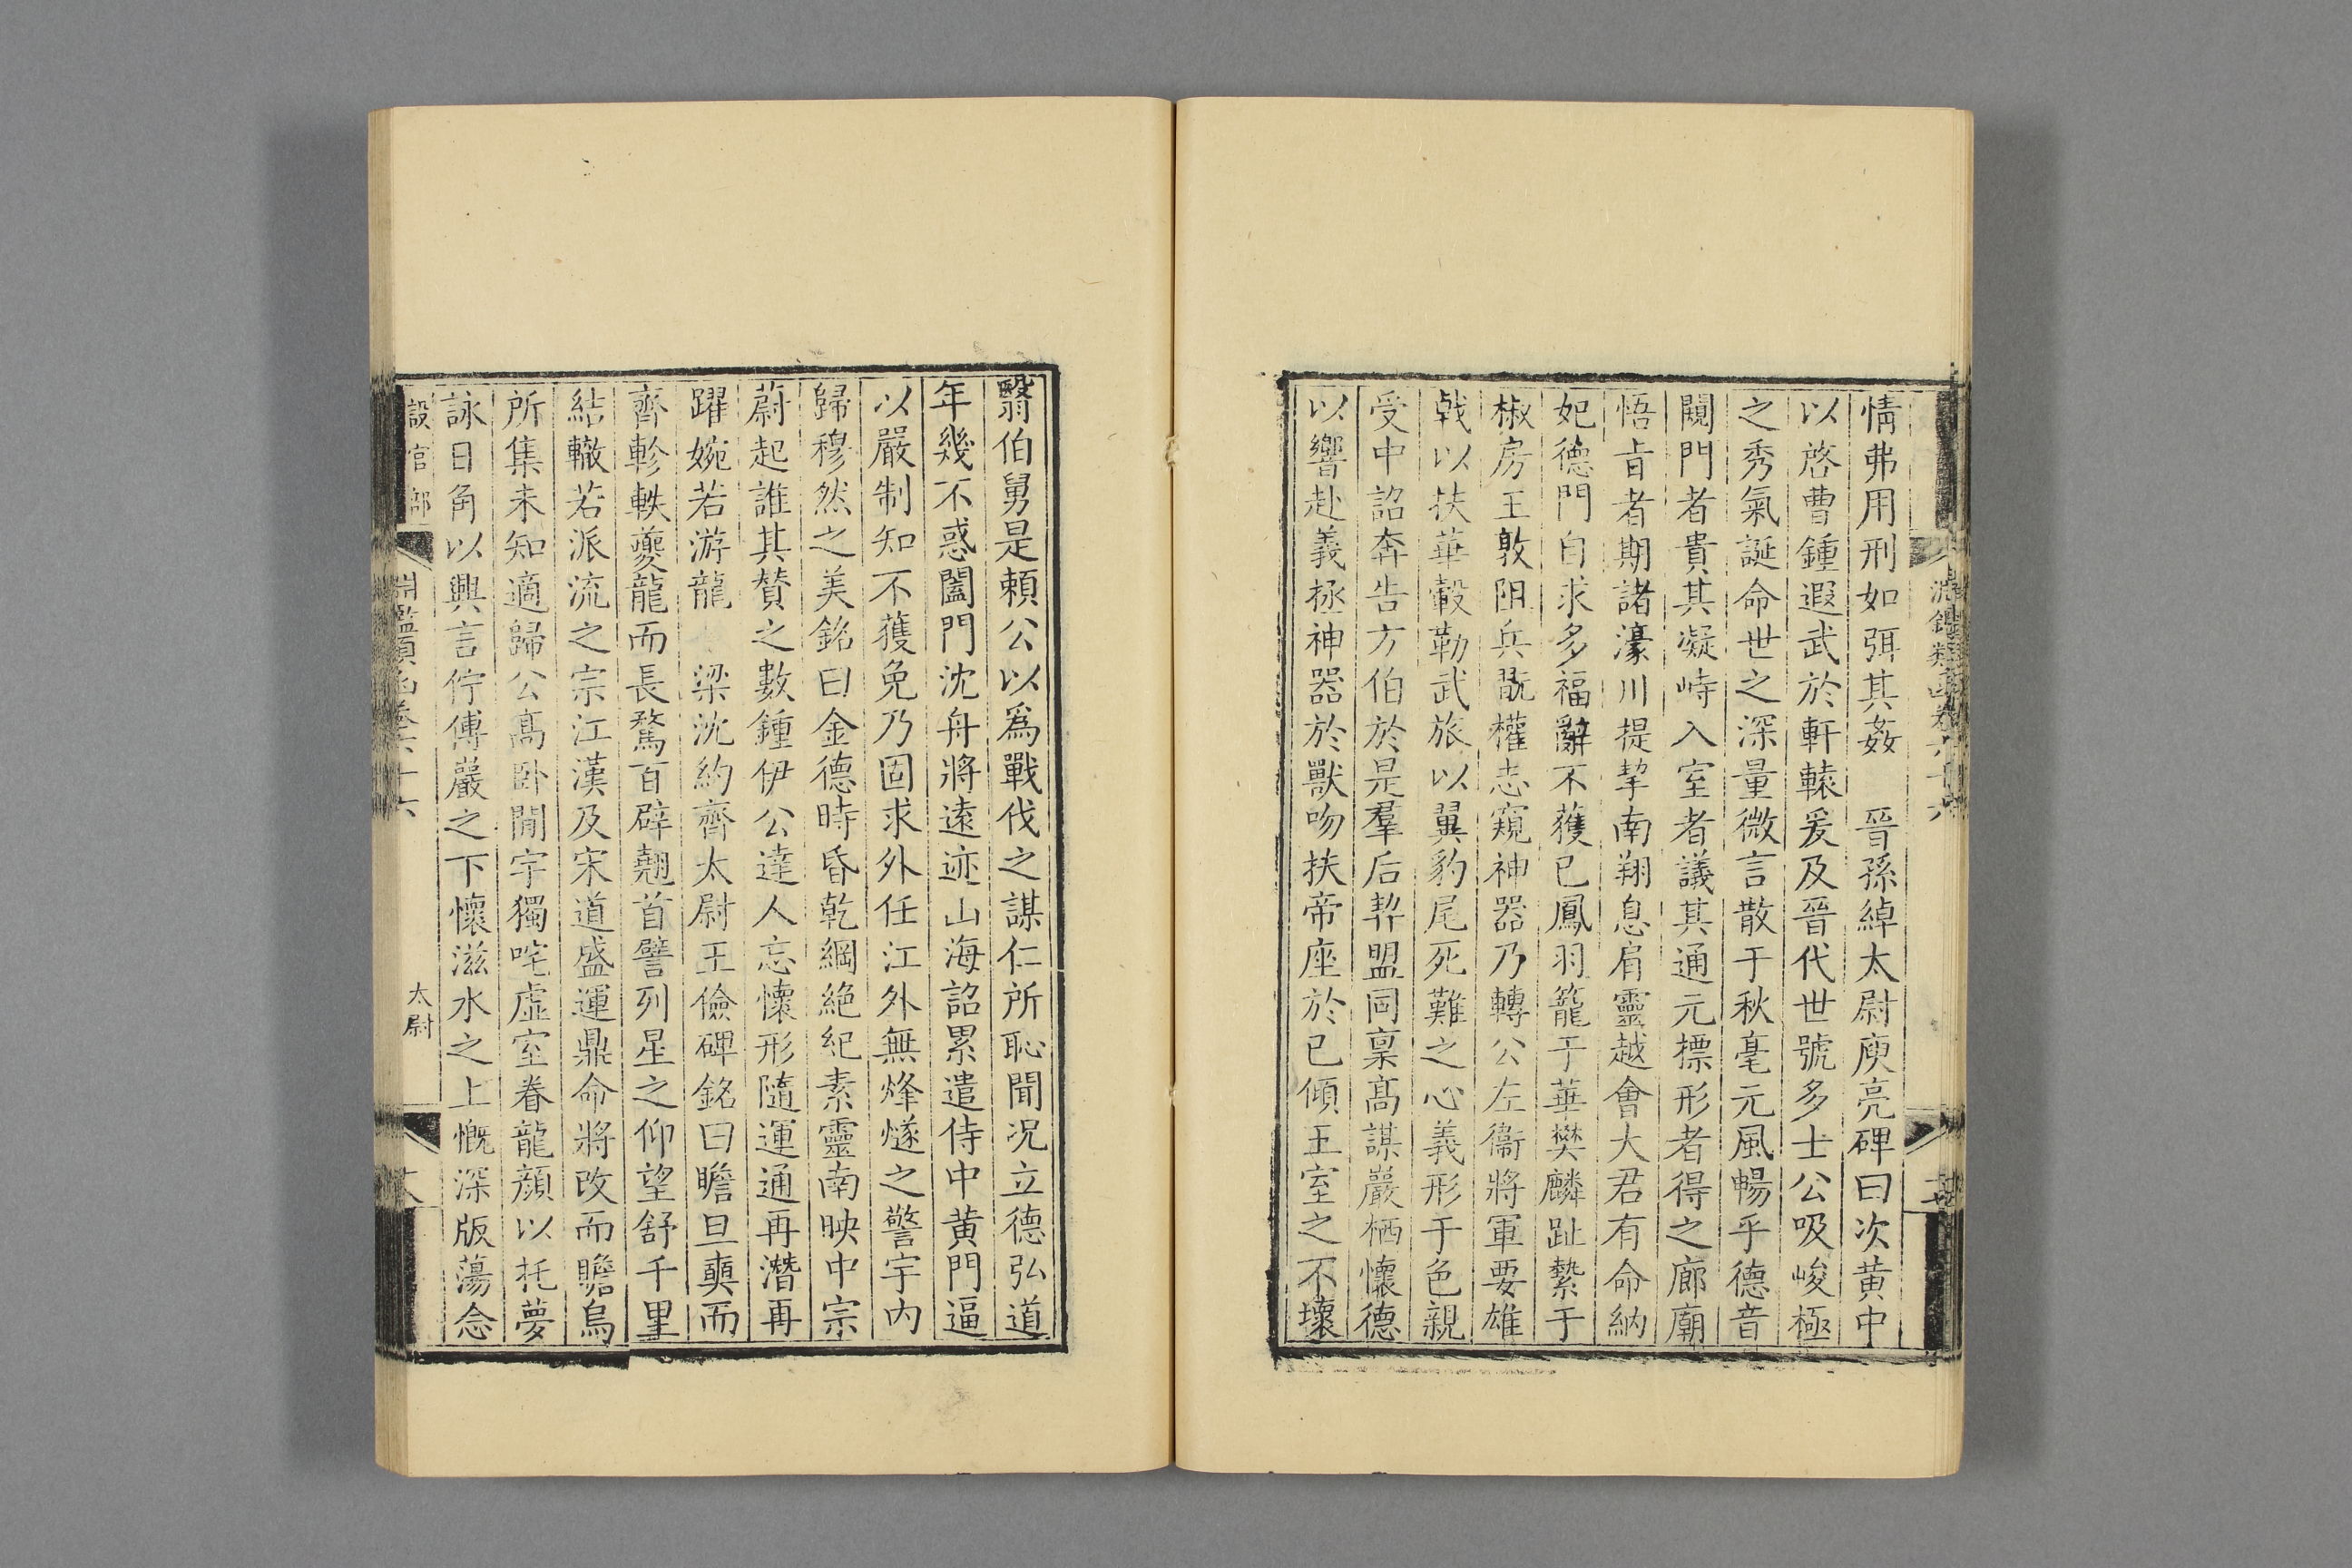 情弗用刑如弭其姦　晉孫綽太尉庾亮碑曰次黄中
以啓曹鍾遐武於軒轅爰及晉代世號多士公吸峻極
之秀氣誕命世之深量微言散于秋毫元風暢乎德音
闚門者貴其凝峙入室者議其通元摽形者得之廊廟
悟旨者期諸濠川提挈南翔息肩靈越會大君有命納
妃德門自求多福辭不獲已鳳羽籠于華樊麟趾縶于
椒房王敦阻兵翫權志窺神器乃轉公左衞將軍要雄
戟以扶華轂勒武旅以翼豹尾死難之心義形于色親
受中詔奔告方伯於是羣后契盟同稟高謀巖栖懷德
以響赴義拯神器於獸吻扶帝座於已傾王室之不壞
翳伯舅是賴公以爲戰伐之謀仁所恥聞况立德弘道
年幾不惑闔門沈舟將遠迹山海詔累遣侍中黄門逼
以嚴制知不獲免乃固求外任江外無烽燧之警宇内
歸穆然之美銘曰金德時昏乾綱絶紀素靈南映中宗
蔚起誰其賛之數鍾伊公達人忘懷形隨運通再潛再
躍婉若游龍　梁沈約齊太尉王儉碑銘曰瞻旦奭而
齊軫軼夔龍而長騖百辟翹首譬列星之仰望舒千里
結轍若派流之宗江漢及宋道盛運鼎命將改而瞻烏
所集未知適歸公高卧閒宇獨咤虛室眷龍顔以托夢
詠日角以興言佇傅巖之下懷滋水之上慨深版蕩念
設官部
淵鑑類函卷六十六
太尉